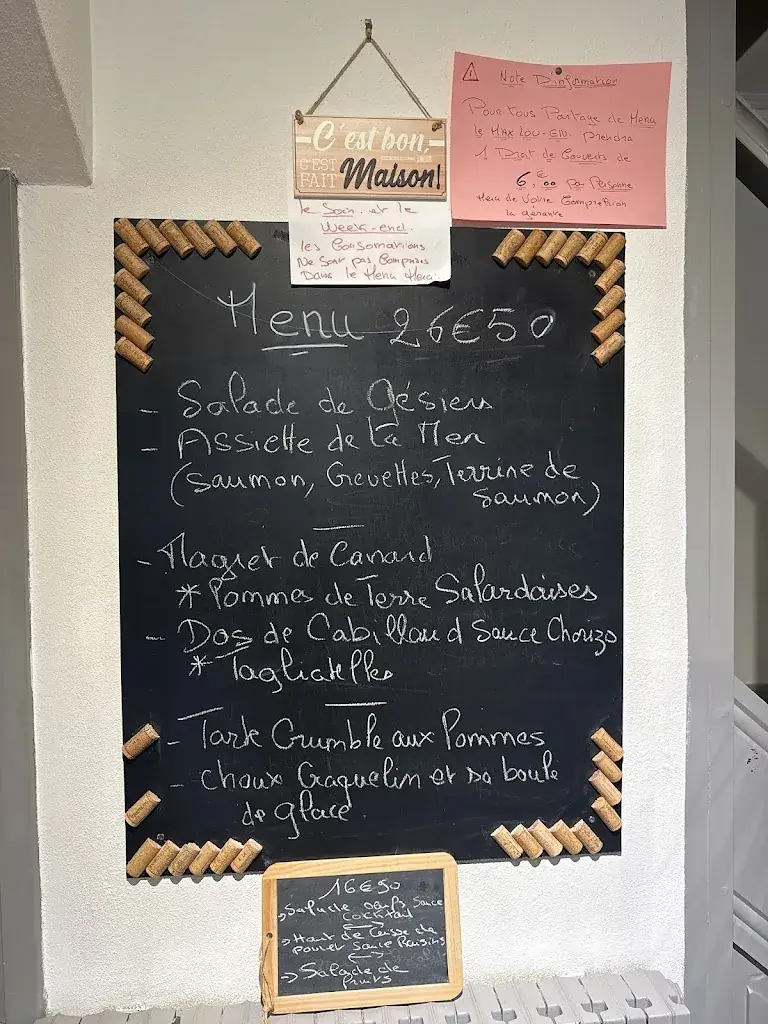 C'est bon,
C'EST
FAIT Maison!
le Soir et le
Week-end.
les Consomations
Ne Sont pas Comprises
Dans le Menu Merci.
⚠ Note D'information
Pour tous Partage de Menu
le MAX LOU-GIN. Prendra
1 Droit de Couverts de
6,€00 par Personne
Merci de Votre Comprehsion
la gérante
Menu 26€50
- Salade de Gésiers
- Assiette de la Mer
(Saumon, Crevettes, Terrine de
Saumon)
- Magret de Canard
* Pommes de Terre Salardaises
- Dos de Cabillaud Sauce Chorizo
* Tagliatelles
- Tarte Crumble aux Pommes
- choux Craquelin et sa boule
de glace
16€50
-> Salade oeufs Sauce
Cocktail
-> Haut de Cuisse de
poulet Sauce Raisins
-> Salade de
fruits